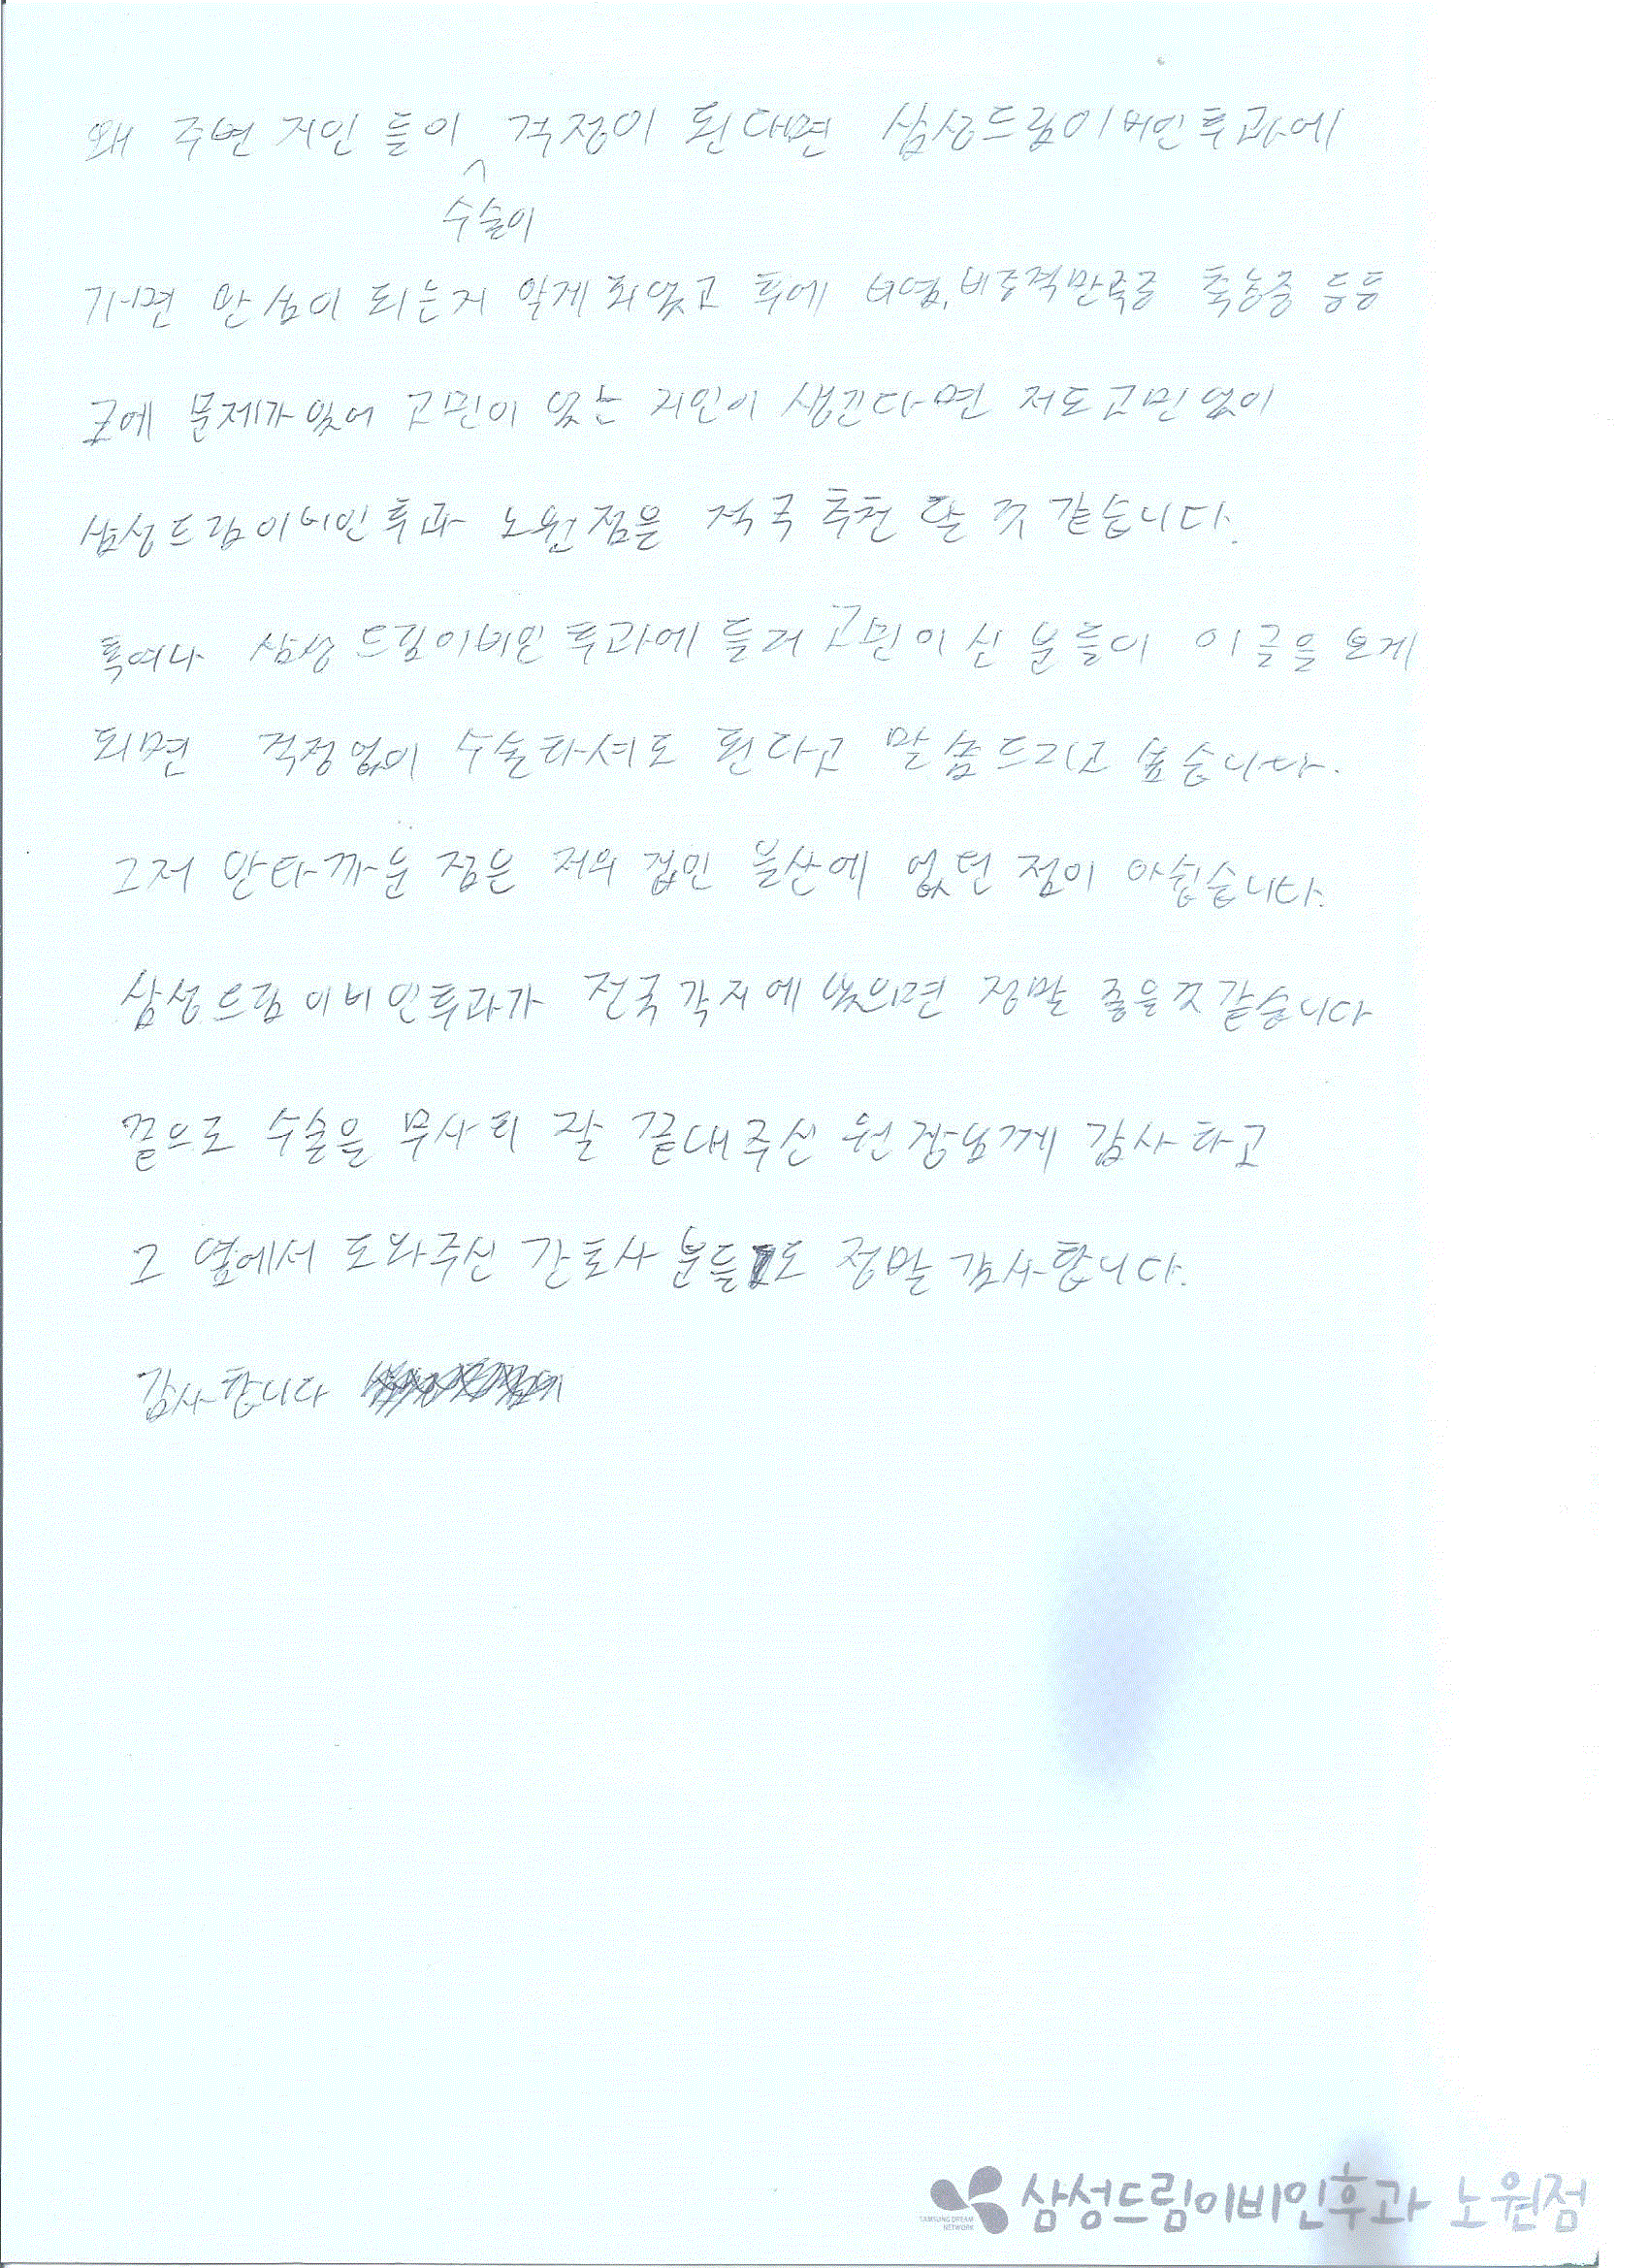 왜 주변 지인 들이 걱정이 된다면 삼성드림이비인후과에
수술이
가면 안심이 되는지 알게 되었고 후에 비염, 비중격만곡증 축농증 등등
코에 문제가 있어 고민이 있는 지인이 생긴다면 저도 고민 없이
삼성드림이비인후과 노원점을 적극 추천 할 것 같습니다.
혹여나 삼성 드림이비인 후과에 들러 고민이신 분들이 이 글을 보게
되면 걱정 없이 수술하셔도 된다고 말씀드리고 싶습니다.
그저 안타까운 점은 저의 집인 울산에 없던 점이 아쉽습니다.
삼성드림이비인후과가 전국 각지에 있으면 정말 좋을것 같습니다
끝으로 수술을 무사히 잘 끝내주신 원장님께 감사하고
그 옆에서 도와주신 간호사 분들도 정말 감사합니다.
감사합니다
삼성드림이비인후과 노원점
SAMSUNG DREAM
NETWORK